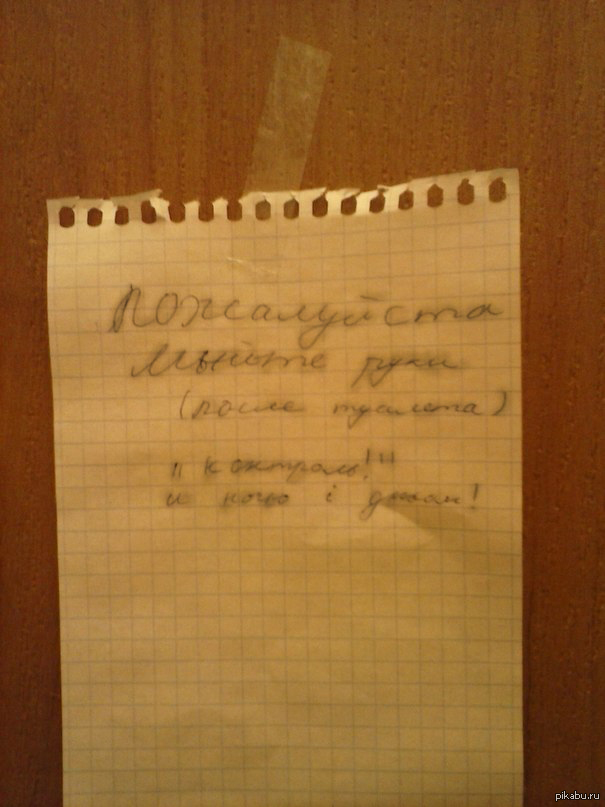 Пожалуйста
мыйте руки
(после туалета)
"контроль!"
и ночю і
pikabu.ru